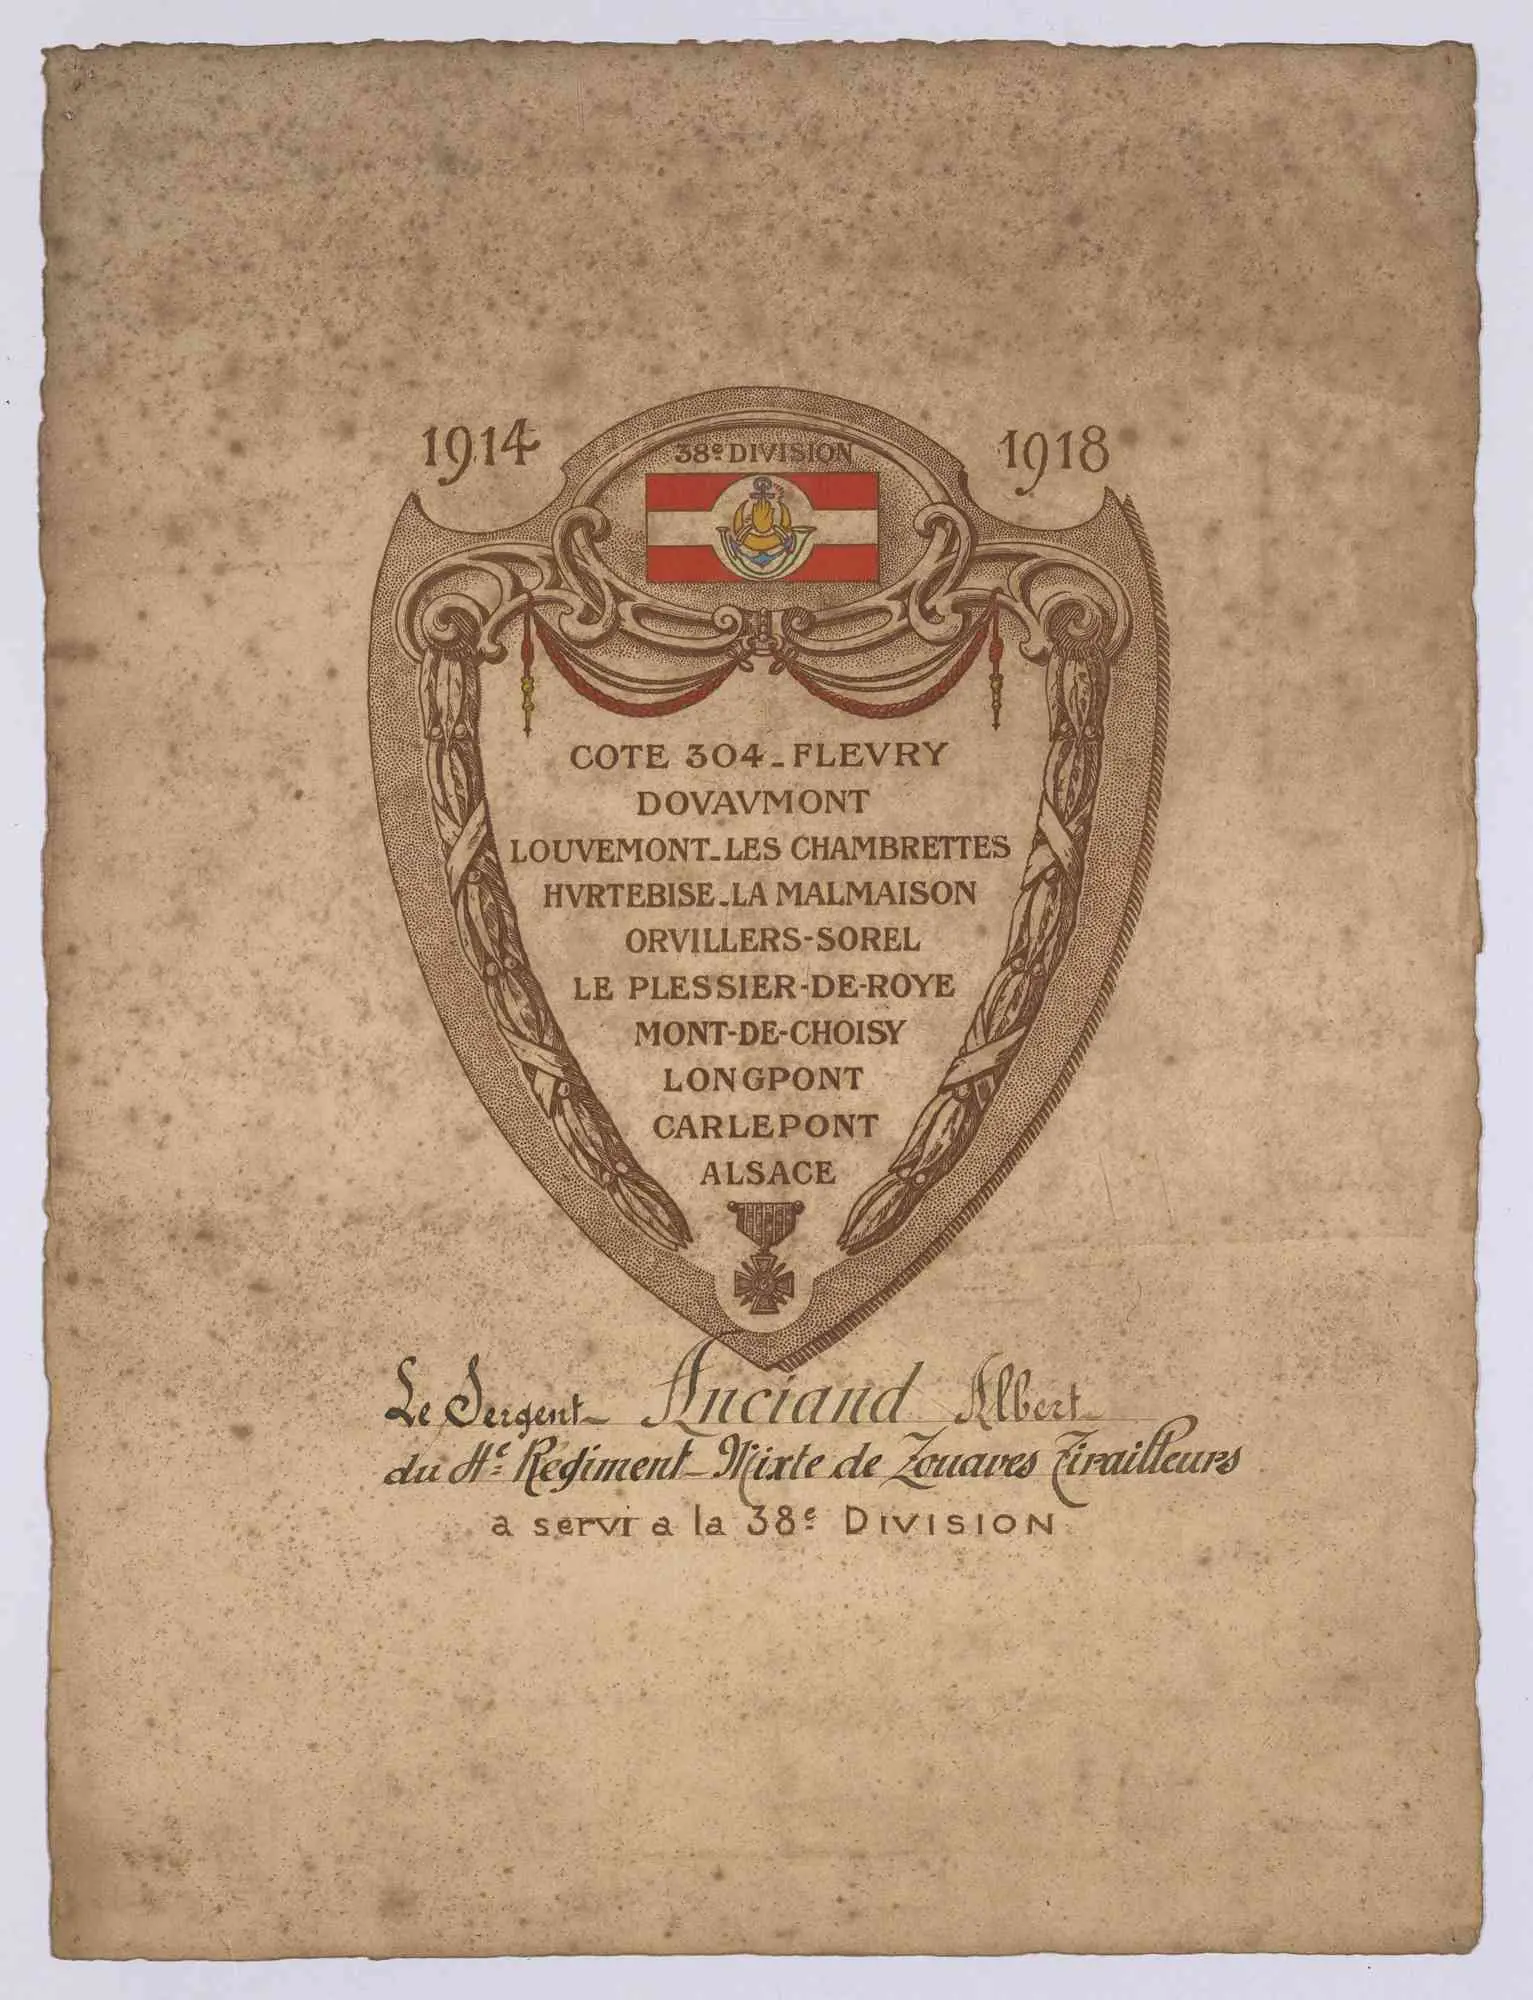 1914
1918
38e DIVISION
COTE 304 - FLEVRY
DOVAVMONT
LOUVEMONT - LES CHAMBRETTES
HVRTEBISE - LA MALMAISON
ORVILLERS-SOREL
LE PLESSIER-DE-ROYE
MONT-DE-CHOISY
LONGPONT
CARLEPONT
ALSACE
Le Sergent Anciand Albert
du 4e Régiment Mixte de Zouaves Tirailleurs
a servi a la 38e DIVISION